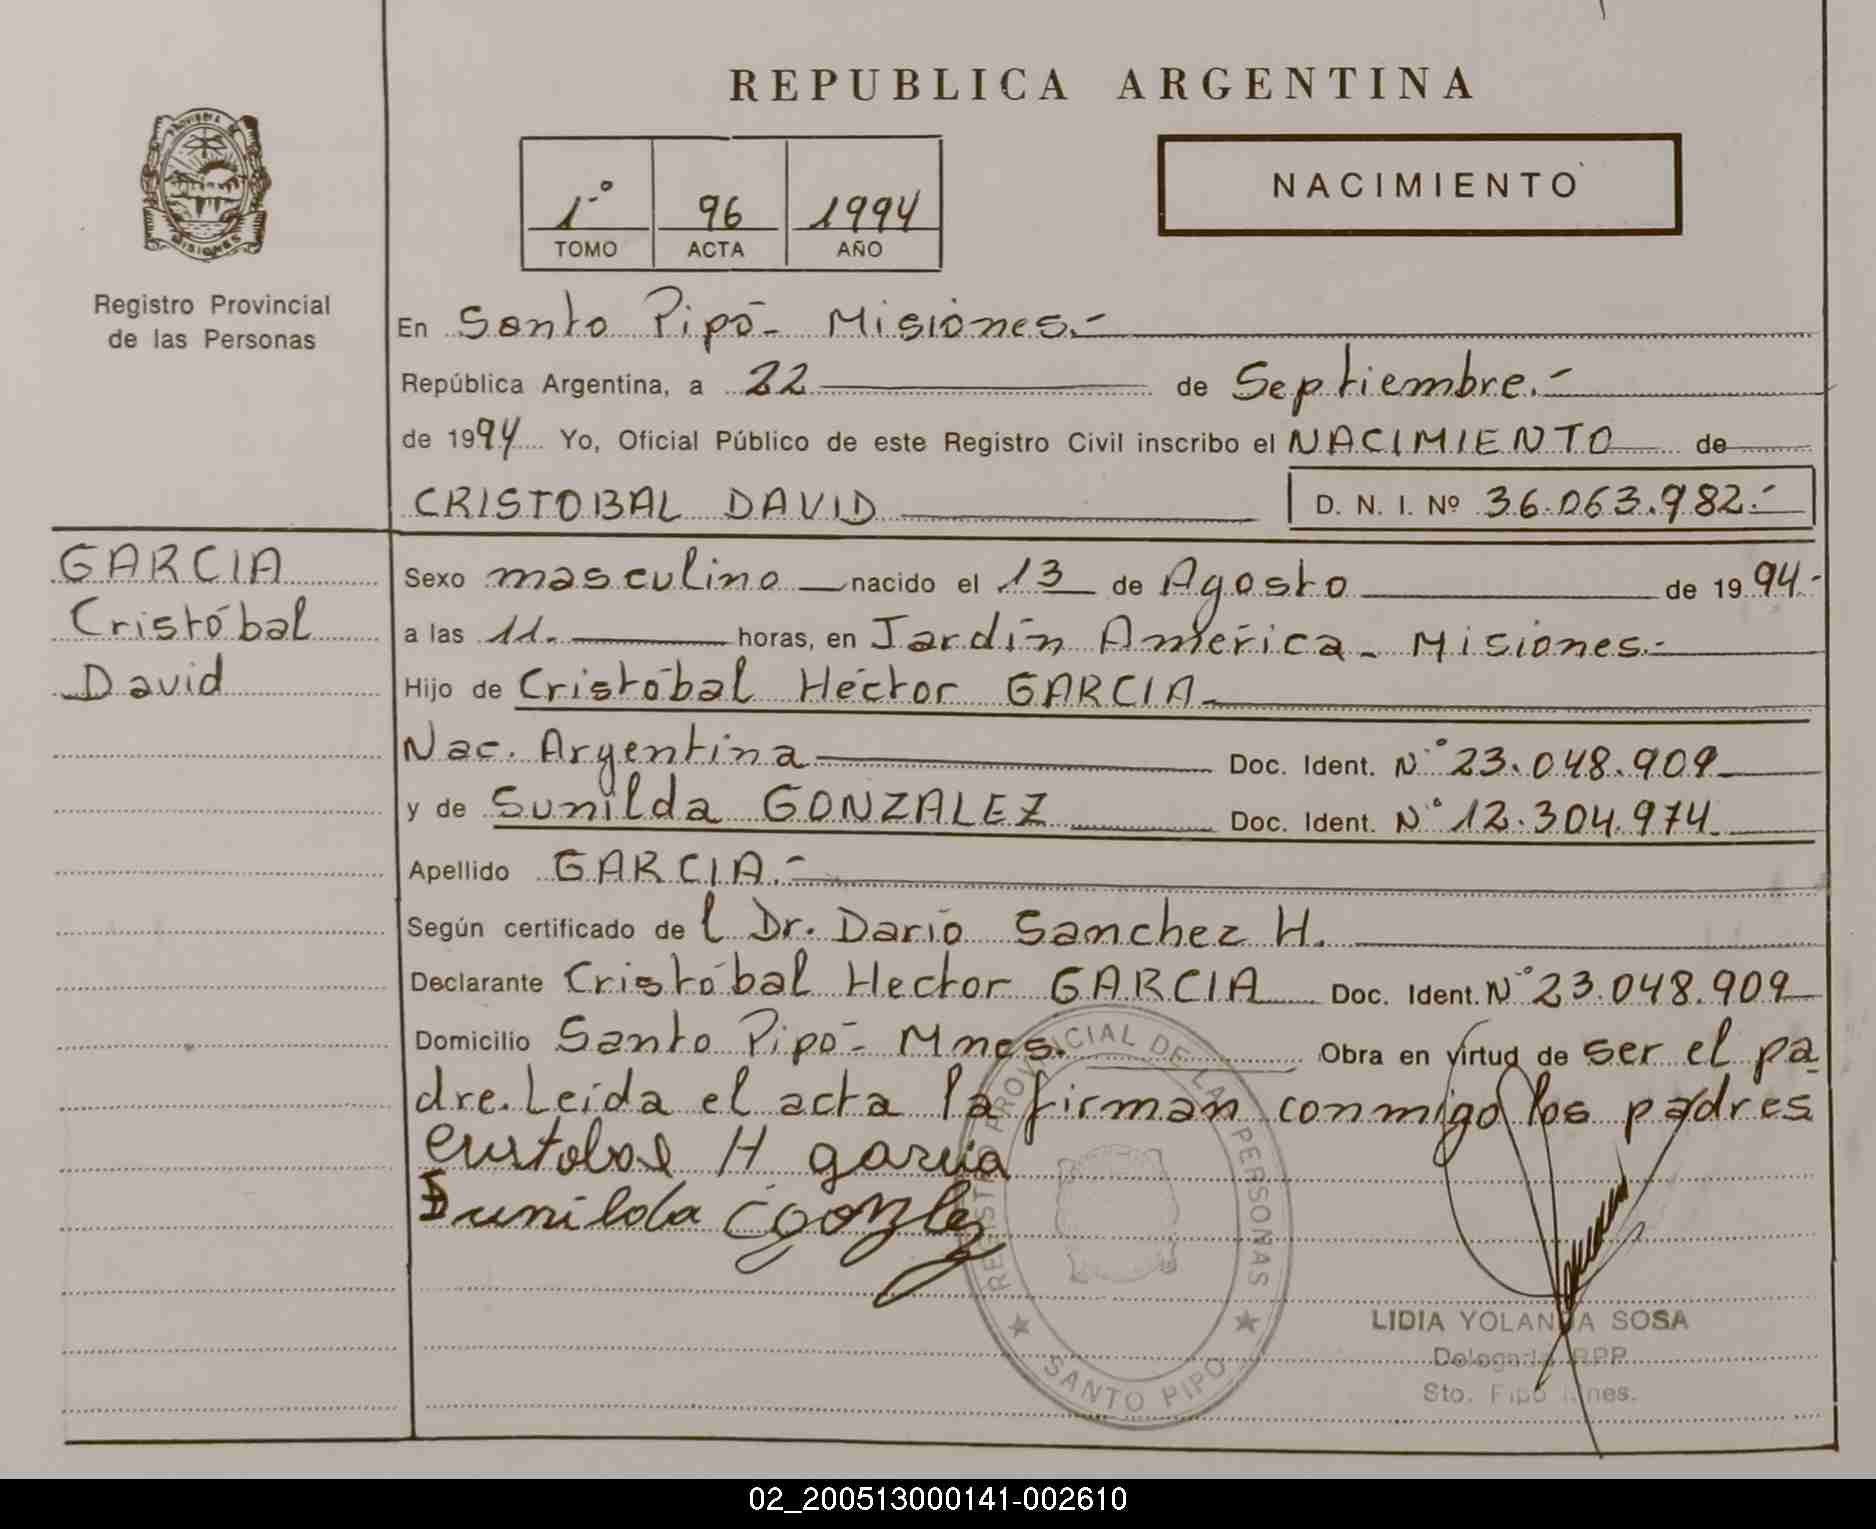 REPUBLICA ARGENTINA
PROVINCIA DE
MISIONES
Registro Provincial
de las Personas
1º 96 1994
TOMO ACTA AÑO
NACIMIENTO
En Santo Pipó - Misiones.-
República Argentina, a 22 de Septiembre.-
de 1994 Yo, Oficial Público de este Registro Civil inscribo el NACIMIENTO de
CRISTOBAL DAVID D. N. I. Nº 36.063.982.-
GARCIA
Cristóbal
David
Sexo masculino nacido el 13 de Agosto de 1994.-
a las 11. horas, en Jardín América - Misiones.-
Hijo de Cristóbal Héctor GARCIA
Nac. Argentina Doc. Ident. Nº 23.048.909
y de Sunilda GONZALEZ Doc. Ident. Nº 12.304.974
Apellido GARCIA.-
Según certificado de l Dr. Darío Sanchez H.
Declarante Cristóbal Hector GARCIA Doc. Ident. Nº 23.048.909
Domicilio Santo Pipó - Mnes. Obra en virtud de ser el pa-
dre. Leída el acta la firman conmigo los padres
Cristobal H garcia
Sunilda Gonzlez
REGISTRO PROVINCIAL DE LAS PERSONAS
SANTO PIPO
LIDIA YOLANDA SOSA
Delegada RPP
Sto. Pipó Mnes.
02_200513000141-002610